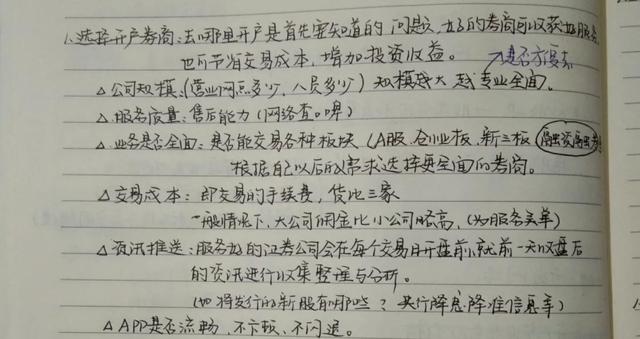 1、选择开户券商:去哪里开户是首先要知道的问题,好的券商可以获好服务
也可节省交易成本,增加投资收益。
是否方便去
△公司规模:(营业网点多少,人员多少)规模越大越专业全面。
△服务质量:售后能力(网络查口碑)
△业务是否全面:是否能交易各种板块(A股、创业板、新三板、融资融券)
根据自己以后的需求选择更全面的券商。
△交易成本:即交易的手续费,货比三家
一般情况下,大公司佣金比小公司略高,(为服务买单)
△资讯推送:服务好的证券公司会在每个交易日开盘前,就前一天收盘后
的资讯进行收集整理与分析。
(如将发行的新股有哪些?央行降息降准信息等)
△APP是否流畅、不卡顿、不闪退。